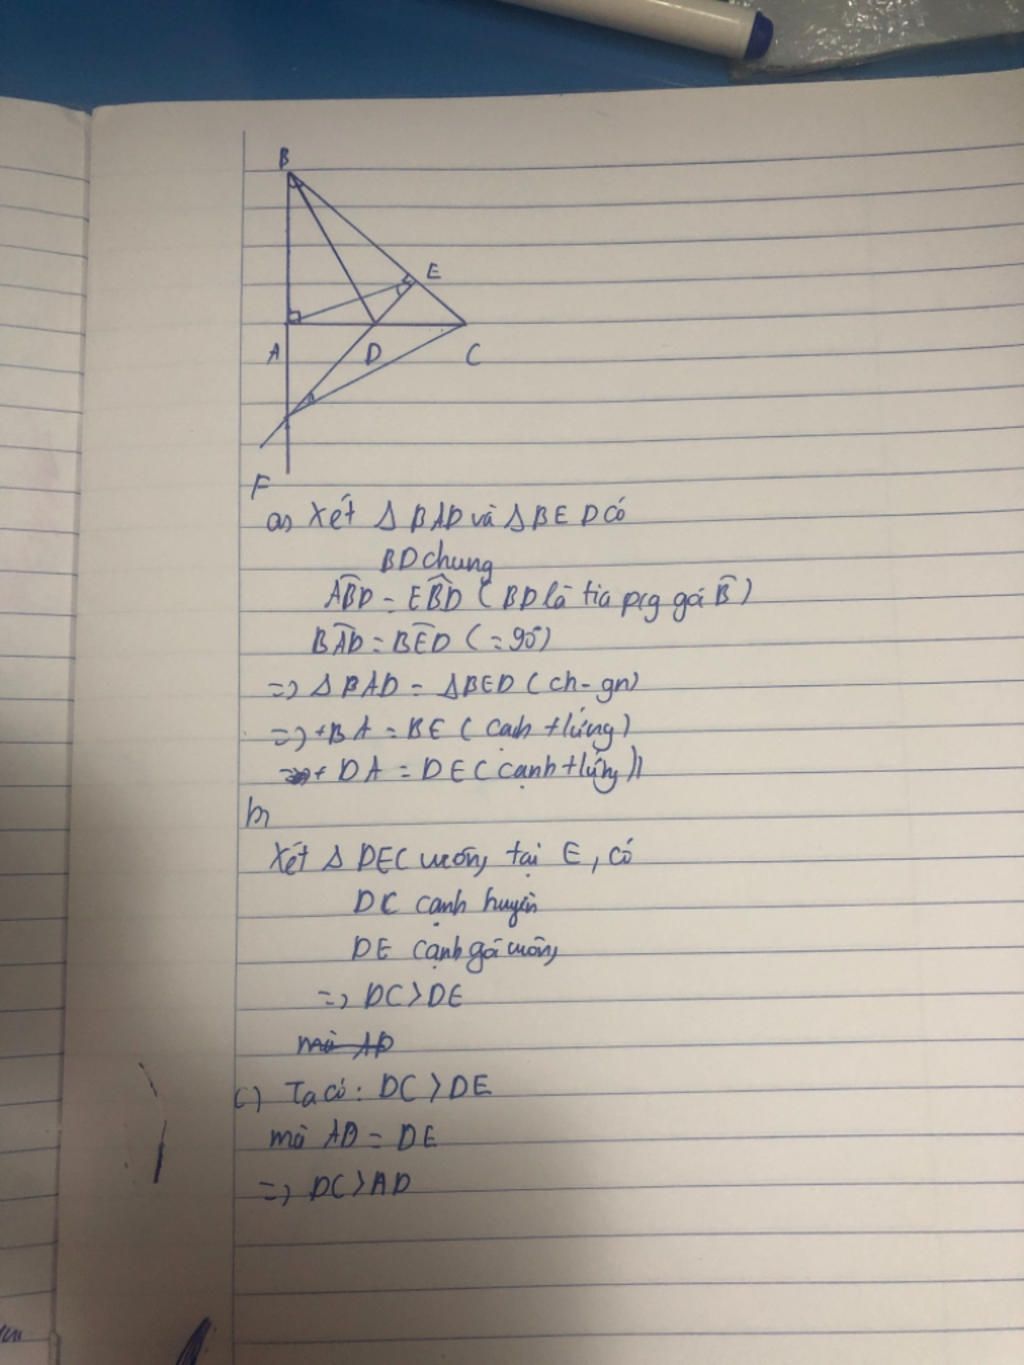 B
E
A
D
C
F
a) Xét Δ BAD và Δ BED có
BD chung
ABD = EBD ( BD là tia p/g góc B )
BAD = BED ( = 90° )
=> Δ BAD = Δ BED ( ch - gn )
=> + BA = BE ( cạnh tứng )
+ DA = DE ( cạnh tứng ))
b)
Xét Δ DEC vuông tại E , có
DC cạnh huyền
DE cạnh góc vuông
=> DC > DE
mà AD
c) Ta có : DC > DE
mà AD = DE
=> DC > AD